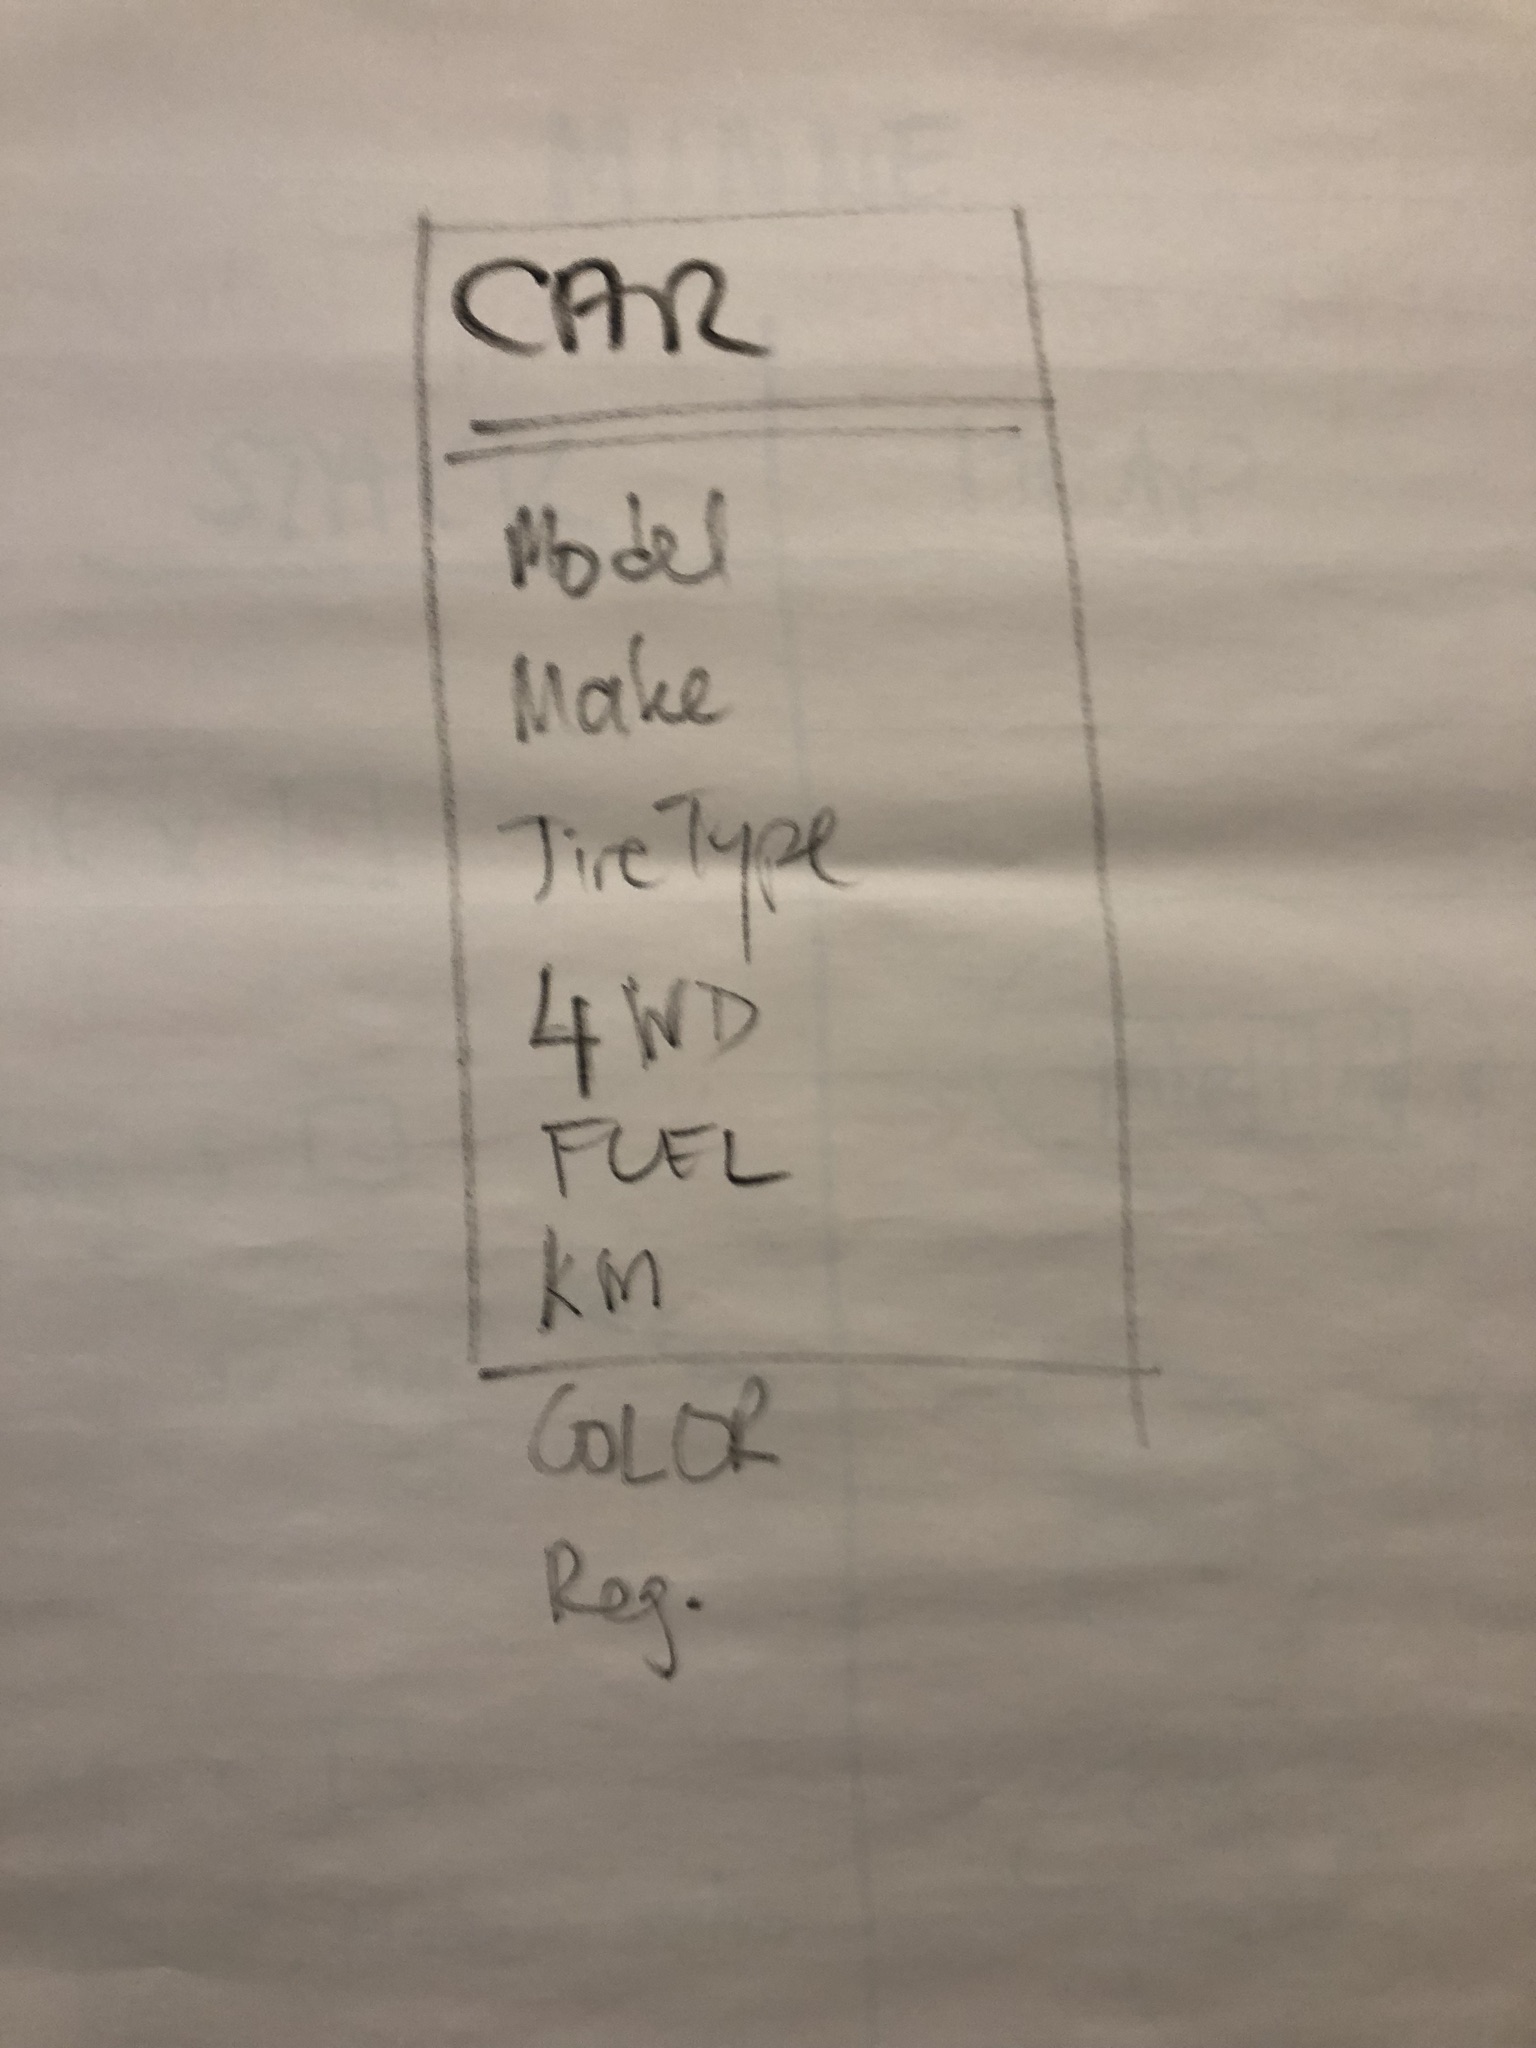 CAR
Model
Make
Tire Type
4WD
FUEL
KM
COLOR
Reg.